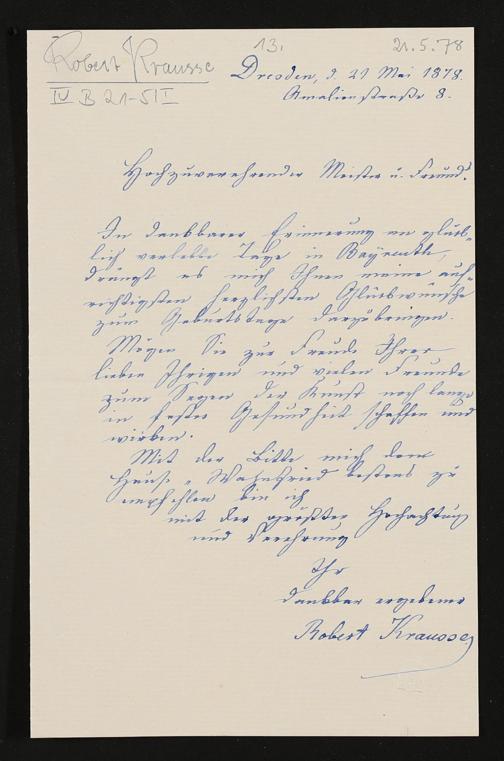 Robert Krausse
13.
21.5.78
IV B 21-5 II
Dresden, d. 21 Mai 1878.
Amalienstraße 8.
Hochzuverehrender Meister u. Freund!
In dankbarer Erinnerung an glück-
lich verlebte Tage in Bayreuth,
drängt es mich Ihnen meine auf-
richtigsten herzlichsten Glückwünsche
zum Geburtstage darzubringen.
Mögen Sie zur Freude Ihrer
lieben Ihrigen und vielen Freunde
zum Segen der Kunst noch lange
in fester Gesundheit schaffen und
wirken.
Mit der Bitte mich dem
Hause „Wahnfried bestens zu
empfehlen bin ich
mit der größten Hochachtung
und Verehrung
Ihr
dankbar ergebener
Robert Krausse